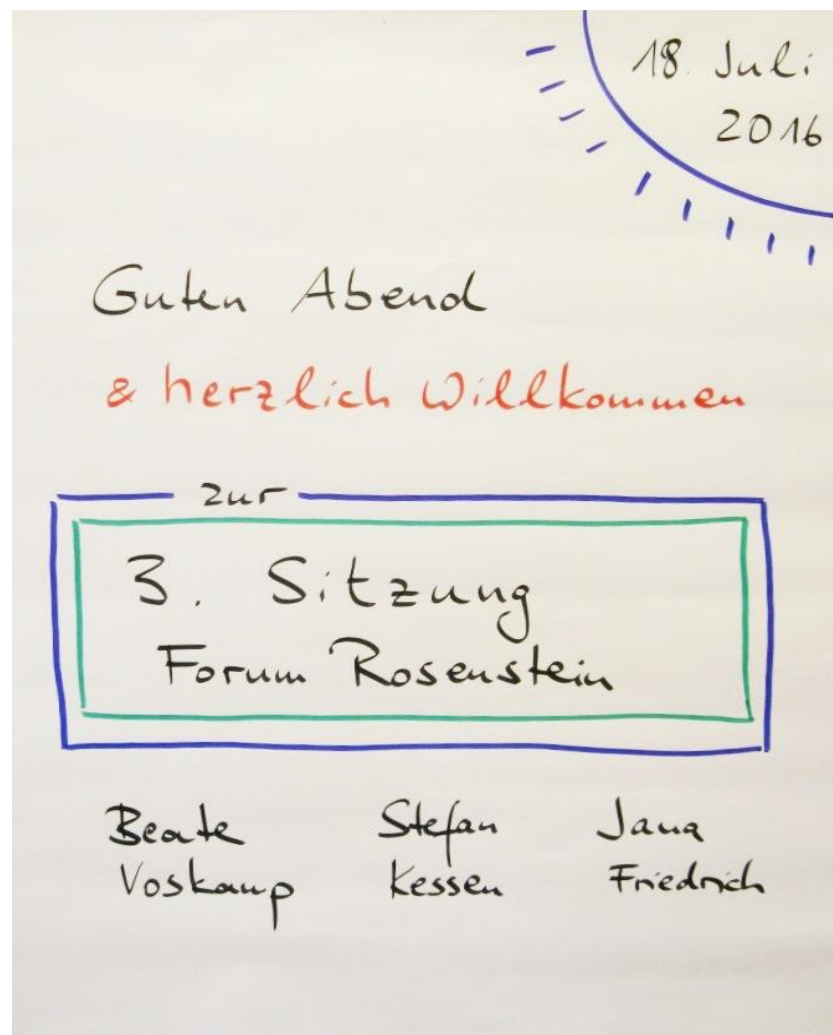 18. Juli
2016
Guten Abend
& herzlich Willkommen
zur
3. Sitzung
Forum Rosenstein
Beate Stefan Jana
Voskamp Kessen Friedrich